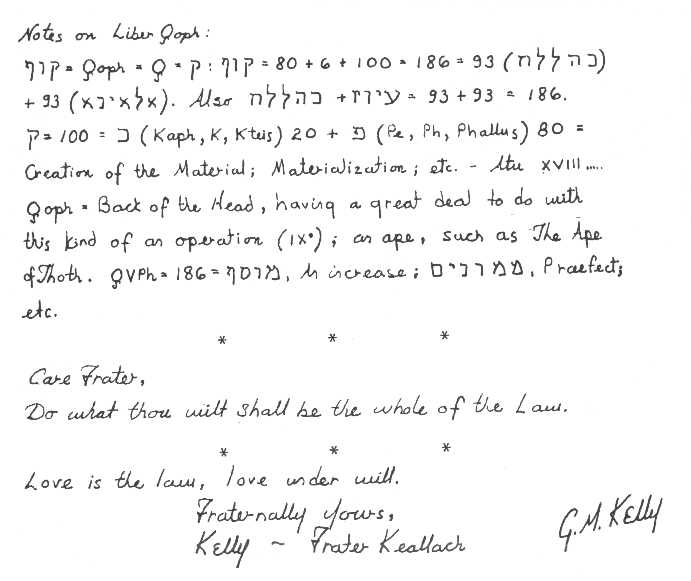 Notes on Liber Qoph:
קוף = Qoph = Q = ק : קוף = 80 + 6 + 100 = 186 = 93 (כהללח)
+ 93 (אלאינא). Also כהללח + עיוז = 93 + 93 = 186.
ק = 100 = כ (Kaph, K, Kteis) 20 + פ (Pe, Ph, Phallus) 80 =
Creation of the Material; Materialization; etc. - Atu XVIII.....
Qoph = Back of the Head, having a great deal to do with
this kind of an operation (IX°); an ape, such as The Ape
of Thoth. QVPh = 186 = מוסף, An increase; ממונים, Praefect;
etc.
* * *
Care Frater,
Do what thou wilt shall be the whole of the Law.
* * *
Love is the law, love under will.
Fraternally yours,
Kelly ~ Frater Keallach
G.M. Kelly